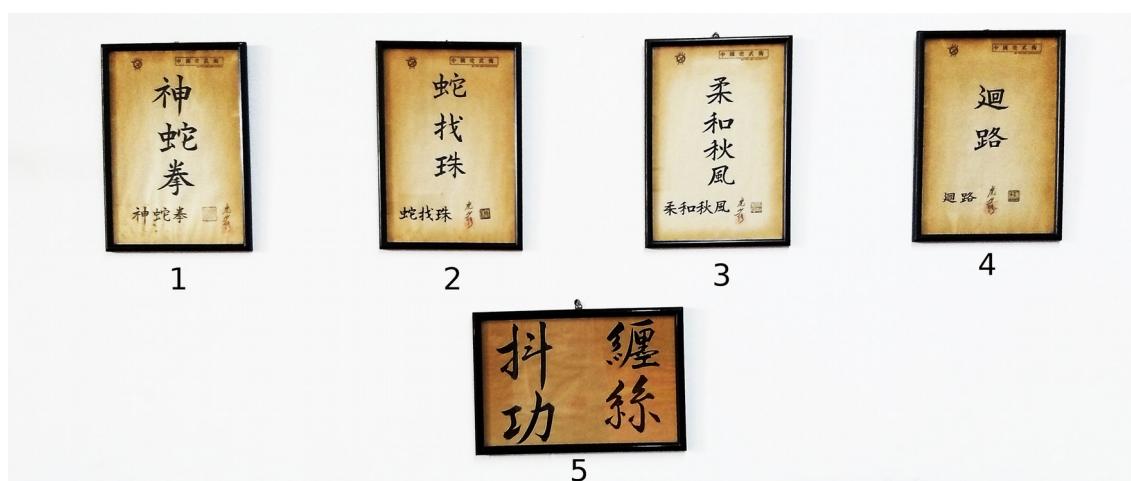 中國老武術
神蛇拳
神蛇拳
1
中國老武術
蛇找珠
蛇找珠
2
中國老武術
柔和秋風
柔和秋風
3
中國老武術
迴路
迴路
4
纏絲
抖功
5